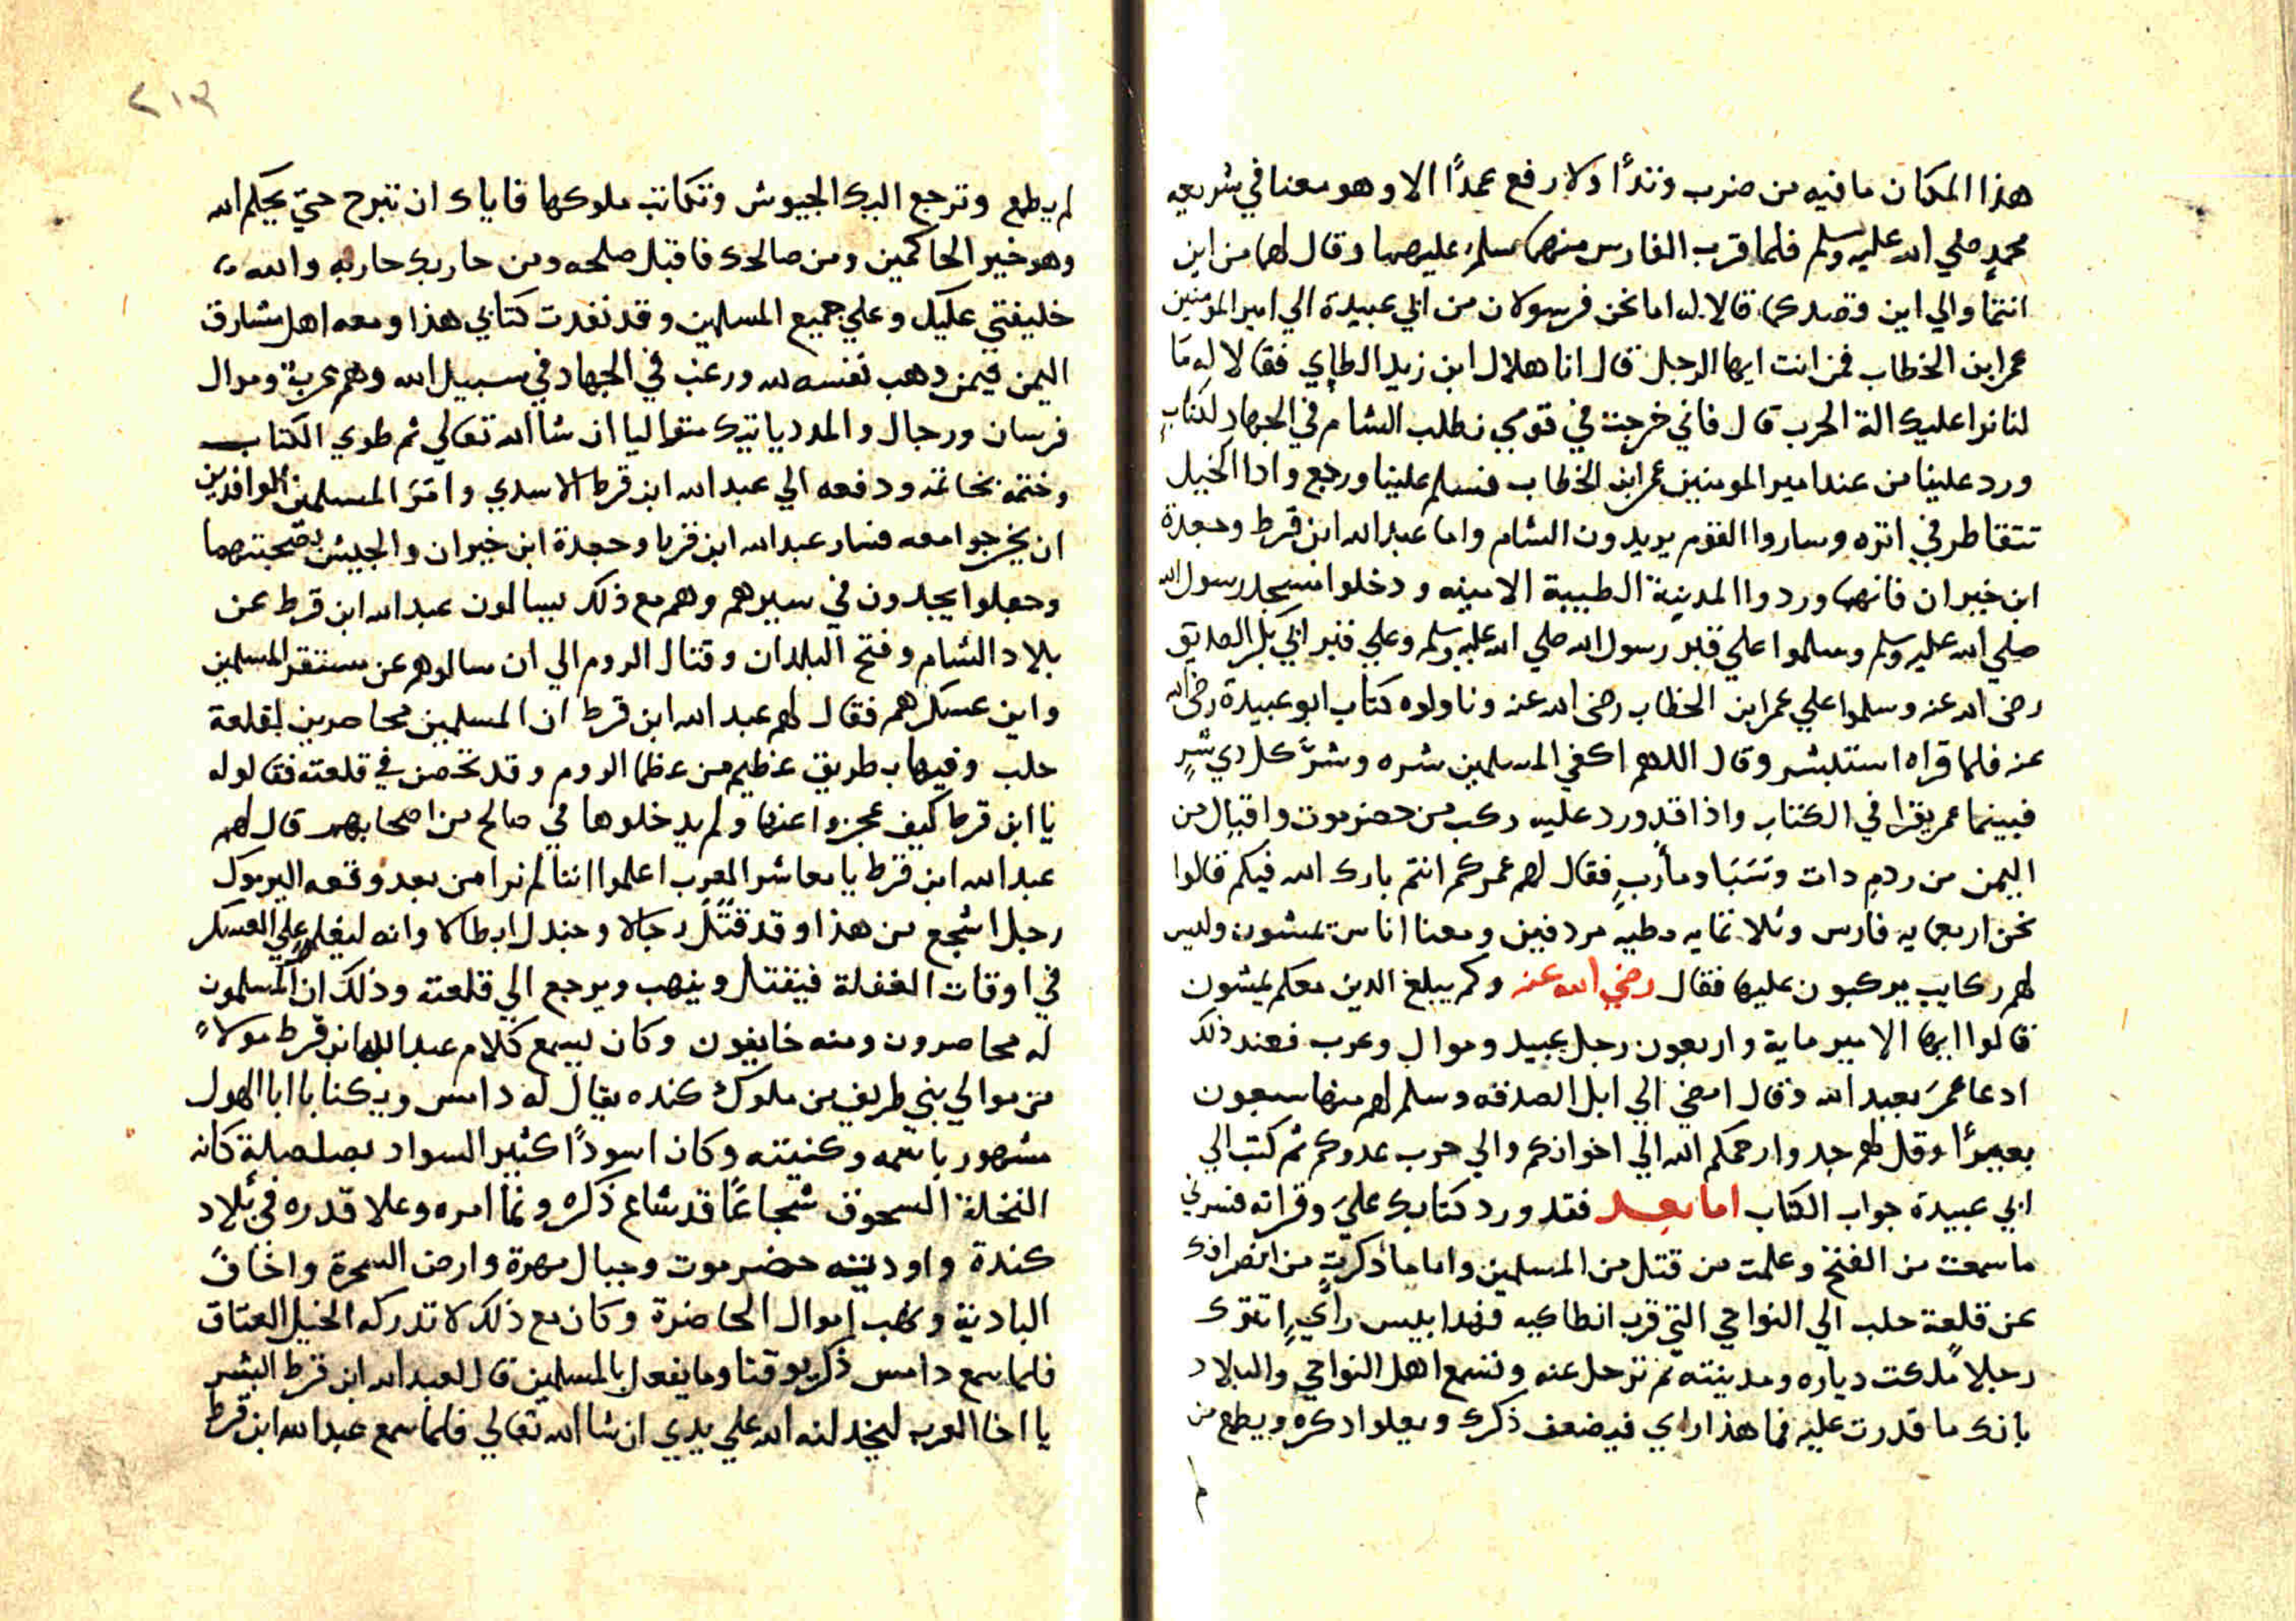 هذا المكان ما فيه من ضرب وتداً ولا رفع عمداً الا وهو معنا في شريعه
محمدٍ صلي الله عليه وسلم فلما قرب الفارس منهما سلم عليهما وقال لهما من اين
انتما والي اين قصدكما قالا له اما نحن فرسولان من ابي عبيدة الي امير المومنين
عمر ابن الخطاب فمن انت ايها الرجل قال انا هلال ابن زيد الطاي فقالا له ما
لنا نرا عليك الة الحرب قال فاني خرجت في قومي نطلب الشام في الجهاد لكتابٍ
ورد علينا من عند امير المومنين عمر ابن الخطاب فسلم علينا ورجع واذا الخيل
تتقاطر في اثره وساروا القوم يريدون الشام واما عبد الله ابن قرط وجعدة
ابن خيران فانهما وردوا المدينة الطيبة الامينه ودخلوا مسجد رسول الله
صلي الله عليه وسلم وسلموا علي قبر رسول الله صلي الله عليه وسلم وعلي قبر ابي بكر الصديق
رضي الله عنه وسلموا علي عمر ابن الخطاب رضي الله عنه وناولوه كتاب ابو عبيدة رضي الله
عنه فلما قراه استبشر وقال اللهم اكفي المسلمين شره وشرَّ كل ذي شرٍ
فبينما عمر يقرا في الكتاب واذا قد ورد عليه ركب من حضرموت واقيال من
اليمن من ردم دات وسَبَا ومأربٍ فقال لهم عمر كم انتم بارك الله فيكم قالوا
نحن اربعمايه فارس وثلاثمايه مطيه مردفين ومعنا اناس تمشون وليس
لهم ركايب يركبون عليها فقال رضي الله عنه وكم يبلغ الذين معكم يمشون
قالوا ايها الامير ماية واربعون رجل عبيد وموال وعرب فعند ذلك
ادعا عمرَ بعبد الله وقال امضي الي ابل الصدقه وسلم لهم منها سبعون
بعيرًا وقل لهم جدوا رحمكم الله الي اخوانكم والي حرب عدوكم ثم كتب الي
ابي عبيدة جواب الكتاب اما بعد فقد ورد كتابك عليَ وقراته فسرني
ما سمعت من الفتح وعلمت من قتل من المسلمين واما ما ذكرت من انصرافك
عن قلعة حلب الي النواحي التي قرب انطاكيه فهذا بيس رايٍ اتترك
رجلاً ملكت دياره ومدينته ثم ترحل عنه وتسمع اهل النواحي والبلاد
بانك ما قدرت عليه فما هذا راي فيضعف ذكرك ويعلوا ذكره ويطمع من
لم
٢١٣
لم يطمع وترجع اليك الجيوش وتكاتب ملوكها فاياك ان تبرح حتي يحكم الله
وهو خير الحاكمين ومن صالحك فاقبل صلحه ومن حاربك حاربه والله
خليفتي عليك وعلي جميع المسلمين وقد نفدت كتابي هذا ومعه اهل مشارق
اليمن فيمن وهب نفسه لله ورغب في الجهاد في سبيل الله وهم عرب وموال
فرسان ورجال والمدد ياتيك متواليا ان شا الله تعالي ثم طوي الكتاب
وختمه بخاتمه ودفعه الي عبد الله ابن قرط الاسدي وامرَ المسلمين الوافدين
ان يخرجوا معه فسار عبد الله ابن قرط وجعدة ابن خيران والجيش بصحبتهما
وجعلوا يجدون في سيرهم وهم مع ذلك يسالون عبد الله ابن قرط عن
بلاد الشام وفتح البلدان وقتال الروم الي ان سالوهم عن مستقر المسلمين
واين عسكرهم فقال لهم عبد الله ابن قرط ان المسلمين محاصرين لقلعة
حلب وفيها بطريق عظيم من عظما الروم وقد تحصن في قلعته فقالوا له
يا ابن قرط كيف عجزوا عنها ولم يدخلوها في صالح من اصحابهم قال لهم
عبد الله ابن قرط يا معاشر العرب اعلموا اننا لم نرا من بعد وقعه اليرموك
رجل اشجع من هذا وقد قتل رجالا وجندل ابطالا وانه ليغلب علي العسكر
في اوقات الغفلة فيقتل وينهب ويرجع الي قلعته وذلك ان المسلمون
له محاصرون ومنه خايفون وكان يسمع كلام عبد الله ابن قرط مولاً
من موالي بني طريف من ملوك كنده يقال له دامس ويكنا بابا الهول
مشهور باسمه وكنيته وكان اسودًا كثير السواد بصلصلة كانه
النخلة السحوق شجاعًا قد شاع ذكره ونما امره وعلا قدره في بلاد
كندة واودية حضرموت وجبال مهرة وارض السحرة واخاف
البادية ونهب اموال الحاضرة وكان مع ذلك لا تدركه الخيل العتاق
فلما سمع دامس ذكر يوقنا وما يفعل بالمسلمين قال لعبد الله ابن قرط ابشر
يا اخا العرب ليخذلنه الله علي يدي ان شا الله تعالي فلما سمع عبد الله ابن قرط